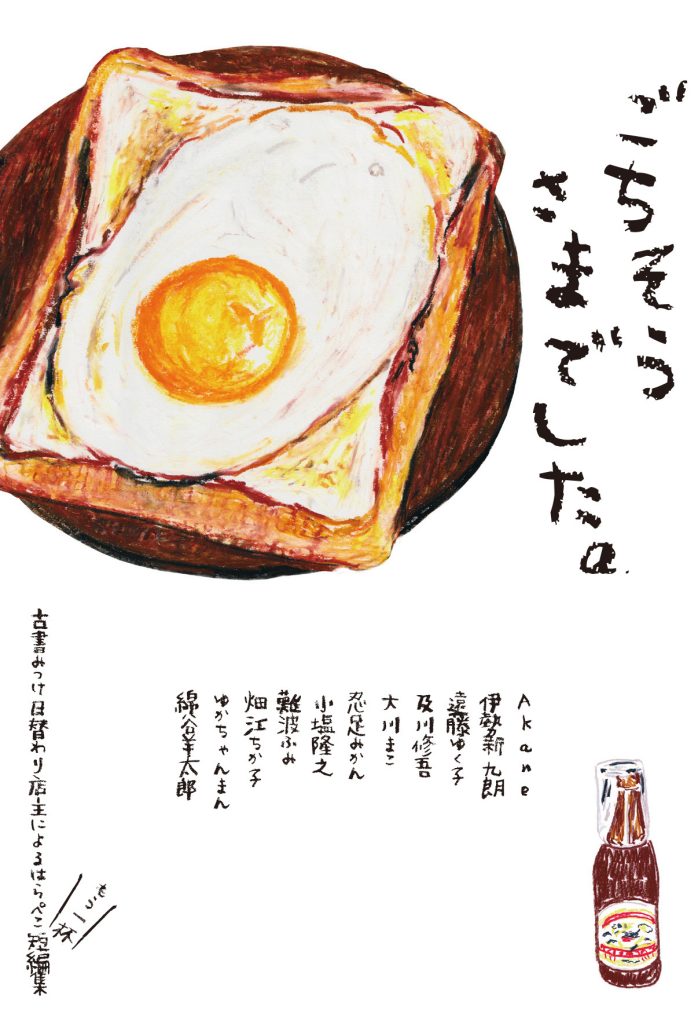 ごちそう
さまでした。
Akane
伊勢新九朗
遠藤ゆく子
及川修吾
大川まこ
忍足みかん
小塩隆之
難波ふみ
畑江ちか子
ゆかちゃんまん
綿谷羊太郎
もう一杯
古書みつけ日替わり店主によるはらぺこ短編集